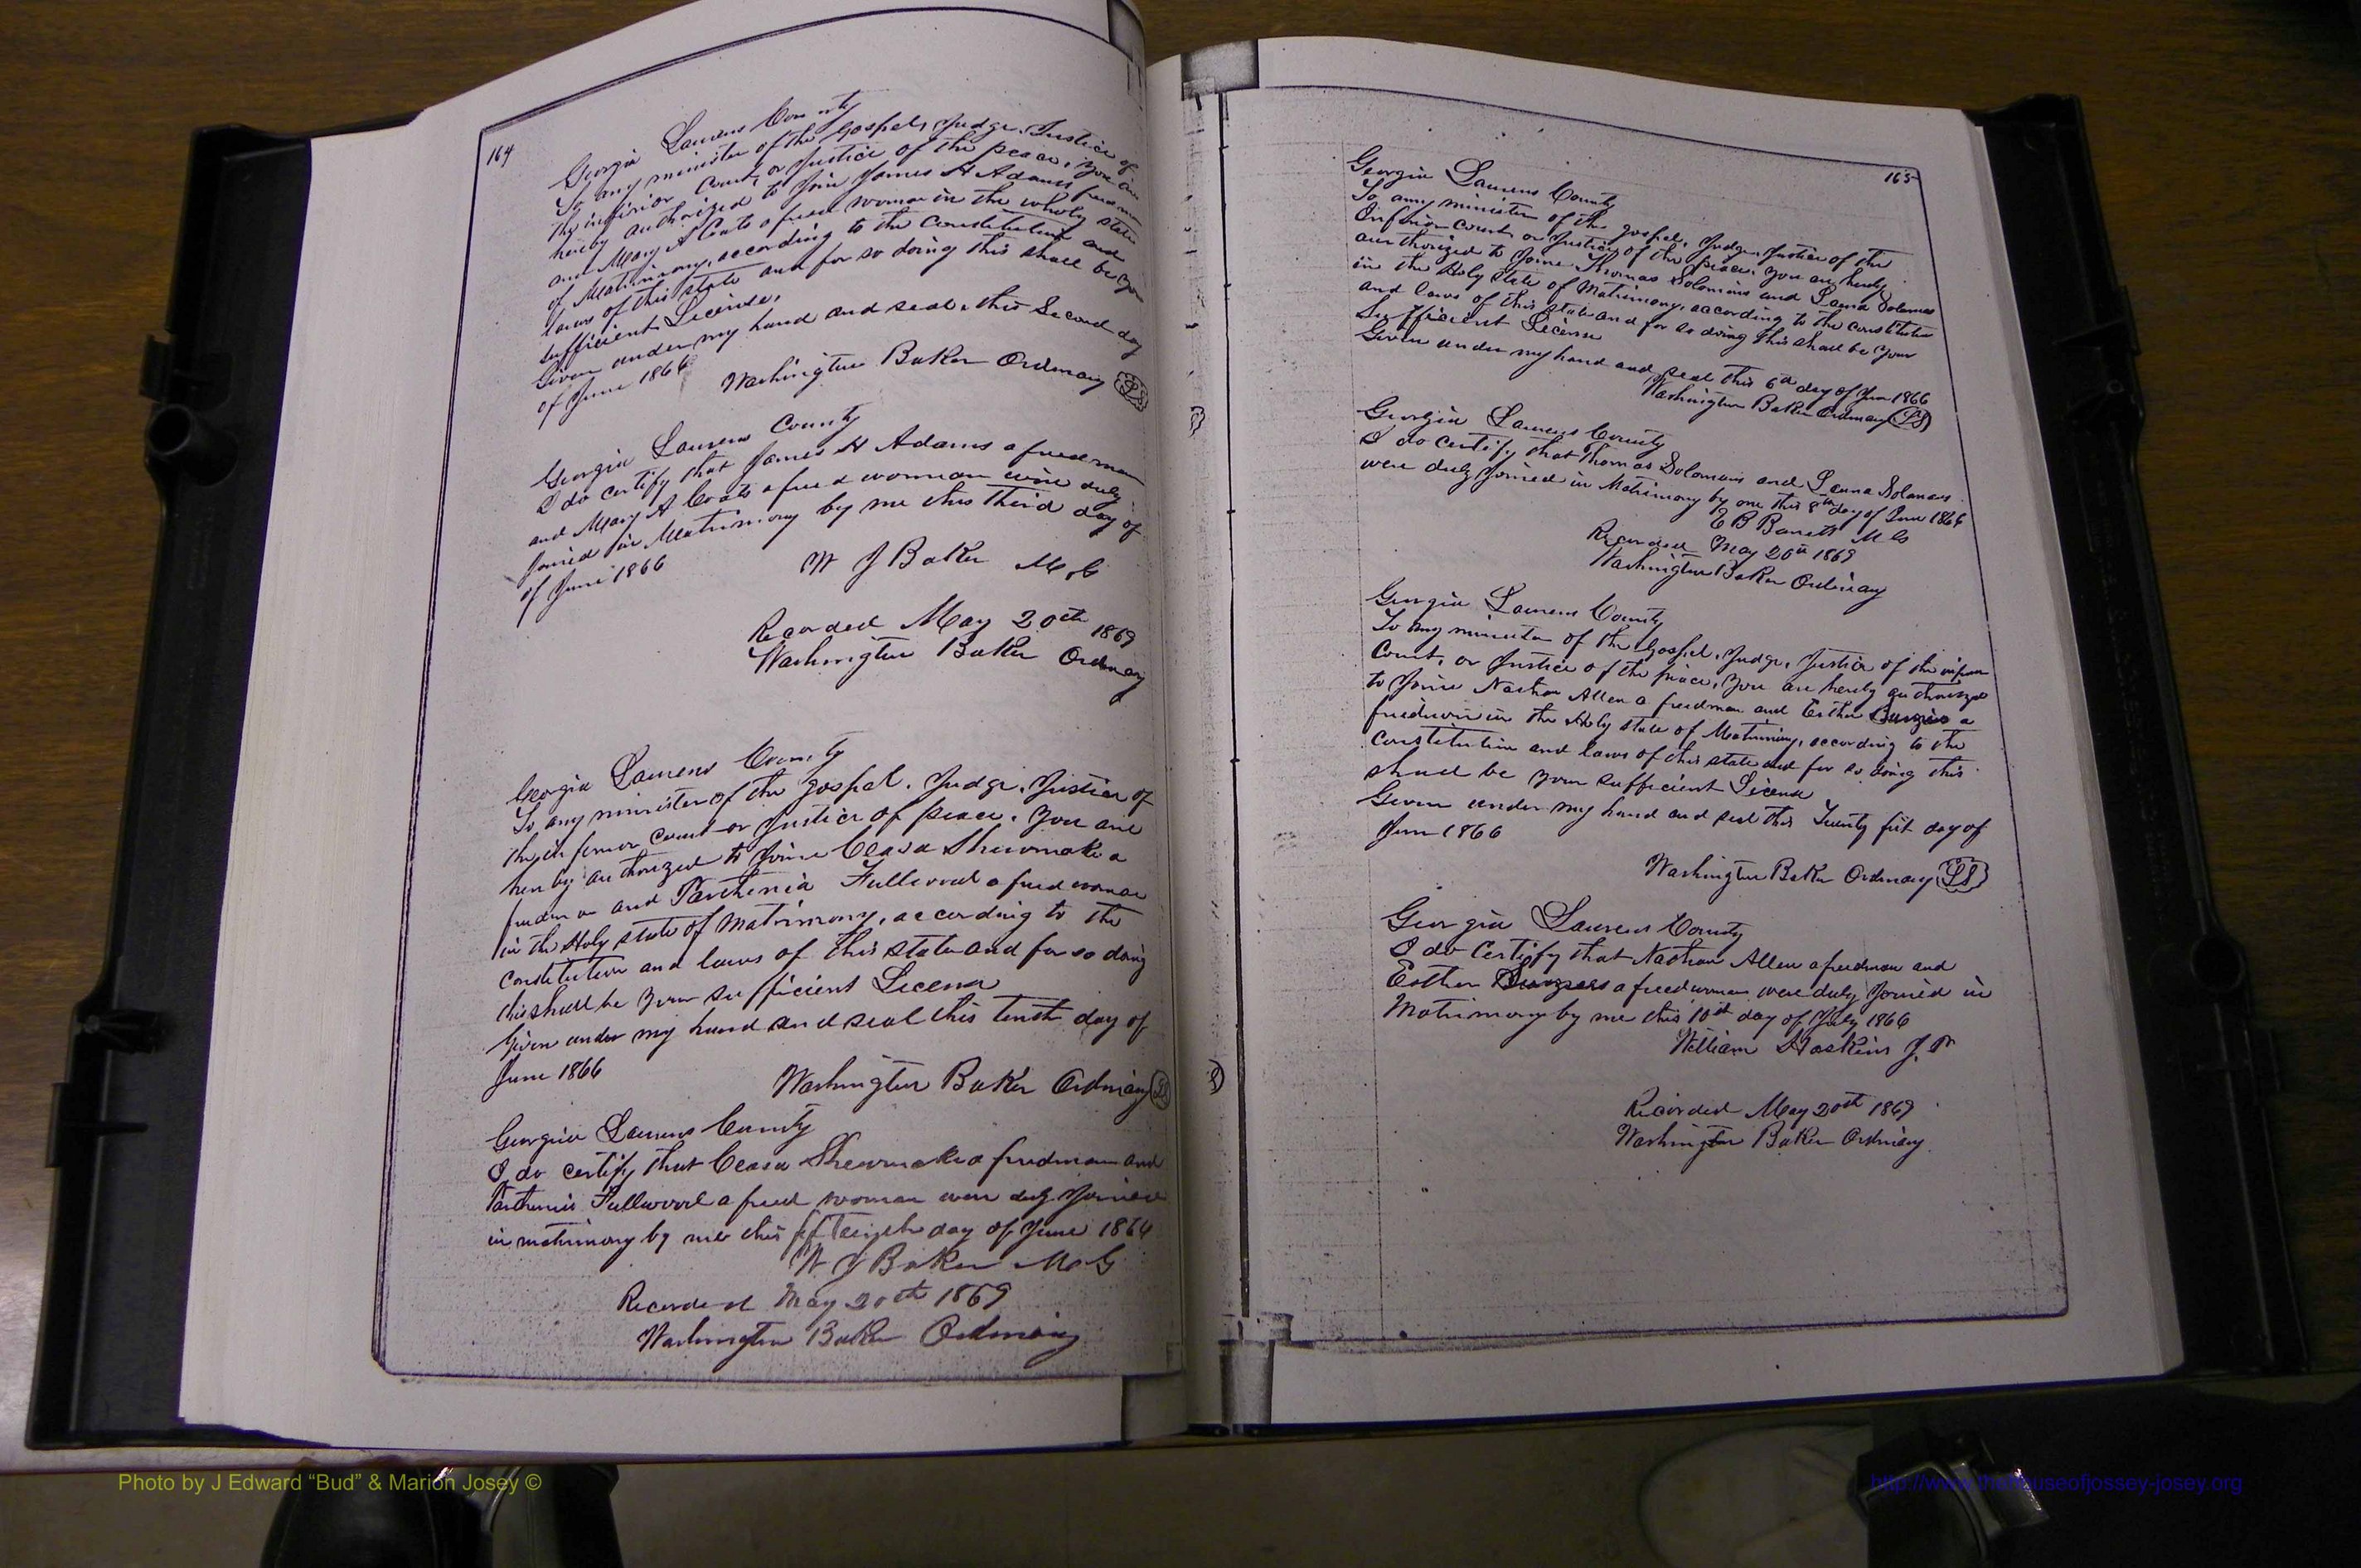 164
Georgia Laurens County
To any minister of the Gospel, Judge, Justice of
the inferior Court, or Justice of the peace, You are
hereby authorized to Join James H Adams freedman
and Mary A Coats a freed woman in the wholy state
of Matrimony, according to the Constitution and
laws of this state and for so doing this shall be your
sufficient License,
Given under my hand and seal, this Second day
of June 1866
Washington Baker Ordinary LS
Georgia Laurens County
I do certify that James H Adams a freedman
and Mary A Coats a freed woman were duly
Joined in Matrimony by me this third day of
of June 1866
W J Baker M G
Recorded May 20th 1869
Washington Baker Ordinary
Georgia Laurens County
To any minister of the gospel, Judge, Justice of
the inferior court or Justice of peace, You are
hereby authorized to Joine Ceasa Shewmake a
freedman and Parthenia Fullwood a freed woman
in the Holy state of Matrimony, according to the
constitution and laws of this state and for so doing
this shall be your sufficient License
Given under my hand and seal this tenth day of
June 1866
Washington Baker Ordinary LS
Georgia Laurens County
I do certify that Ceasa Shewmake a freedman and
Parthenia Fullwood a freed woman were duly Joined
in matrimony by me this day of June 1866
W J Baker M G
Recorded May 20th 1869
Washington Baker Ordinary
165
Georgia Laurens County
To any minister of the gospel, Judge, Justice of the
Inferior Court, or Justice of the peace, You are hereby
authorized to Joine Thomas Solomons and Solomons
in the Holy State of Matrimony, according to the constitution
and laws of this state and for so doing this shall be your
Sufficient License
Given under my hand and seal this 6th day of June 1866
Washington Baker Ordinary LS
Georgia Laurens County
I do certify that Thomas Solomons and Solomons
were duly Joined in Matrimony by me this 8th day of June 1866
E B Barrett M G
Recorded May 20th 1869
Washington Baker Ordinary
Georgia Laurens County
To any minister of the Gospel, Judge, Justice of the inferior
Court, or Justice of the peace, You are hereby authorized
to Joine Nathan Allen a freedman and Esther a
in the Holy state of Matrimony, according to the
constitution and laws of this state and for so doing this
shall be your sufficient License
Given under my hand and seal this Twenty day of
June 1866
Washington Baker Ordinary LS
Georgia Laurens County
I do certify that Nathan Allen a freedman and
Esther a freed woman were duly Joined in
Matrimony by me this day of July 1866
William Hoskins J. P
Recorded May 20th 1869
Washington Baker Ordinary
Photo by J Edward “Bud” & Marion Josey ©
http://www.thehouseofjossey-josey.org